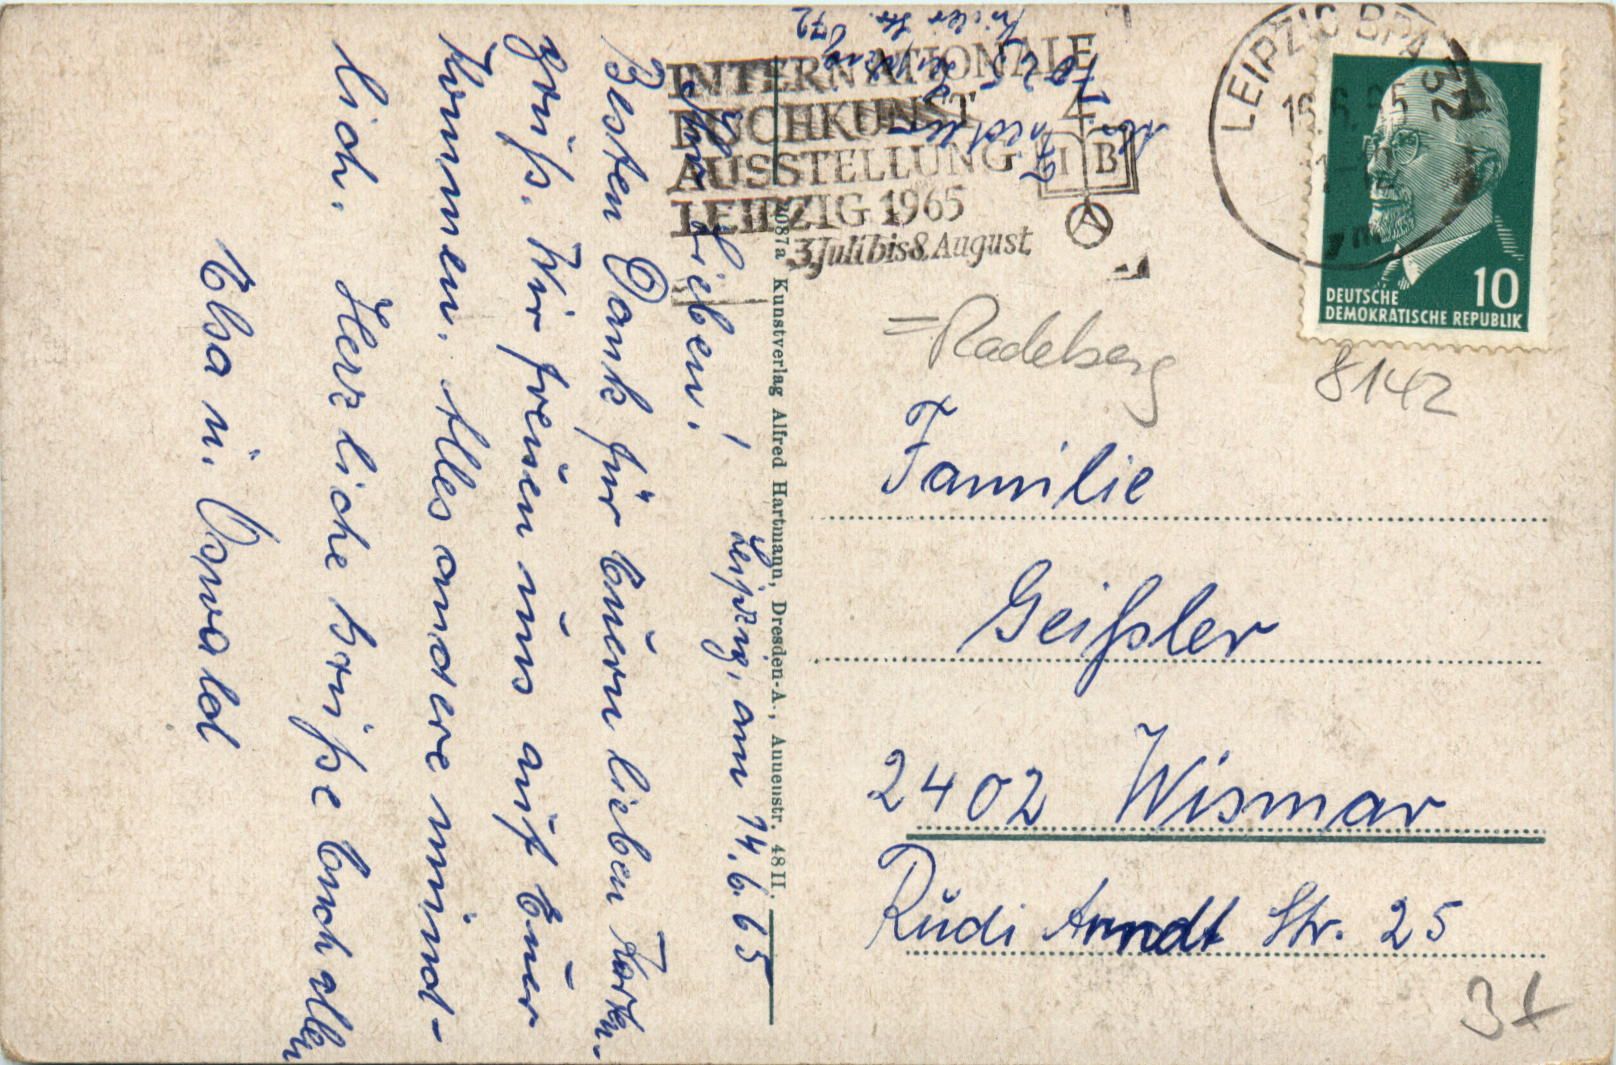 INTERNATIONALE
BUCHKUNST
AUSSTELLUNG
LEIPZIG 1965
3. Juli bis 8. August
I B A
LEIPZIG BPA 32
16.6.65
DEUTSCHE
DEMOKRATISCHE REPUBLIK
10
= Radeberg
8142
Familie
Geißler
2402 Wismar
Rudi Arndt Str. 25
3x
2087a Kunstverlag Alfred Hartmann, Dresden-A., Annenstr. 48 II.
Leipzig, am 14.6.65
Lieben!
Besten Dank für Euern lieben Karten-
gruß. Wir freuen uns auf Euer
Kommen. Alles andere münd-
lich. Herzliche Grüße Euch allen
Elsa u. Oswald